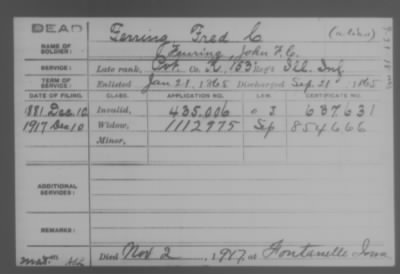 DEAD
Ferring, Fred C (alias)
NAME OF SOLDIER: Feuring, John F. C.
SERVICE: Late rank, Pvt. Co. K, 153 Reg't Ill. Inf.
TERM OF SERVICE: Enlisted Jan 21, 1865 Discharged Sep. 21, 1865
DATE OF FILING. CLASS. APPLICATION NO. LAW. CERTIFICATE NO.
1881 Dec. 10 Invalid, 435.006 637.631
1917 Dec 10 Widow, 1112975 Sep 854666
Minor,
ADDITIONAL SERVICES:
REMARKS:
Died Nov 2, 1917, at Fontanelle Iowa